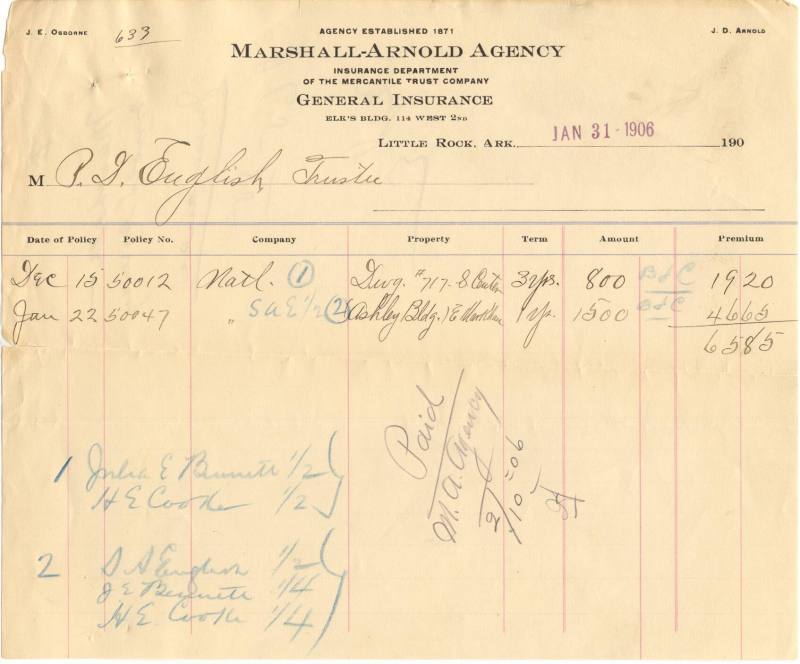 J. E. Osborne
633
AGENCY ESTABLISHED 1871
J. D. Arnold
MARSHALL-ARNOLD AGENCY
INSURANCE DEPARTMENT
OF THE MERCANTILE TRUST COMPANY
GENERAL INSURANCE
ELK'S BLDG. 114 WEST 2ND
LITTLE ROCK, ARK. JAN 31 1906 190
M P. D. English, Trustee
Date of Policy Policy No. Company Property Term Amount Premium
Dec 15 50012 Natl. 1 Dwg. #717 S. Center 3 yrs. 800 B & C 19 20
Jan 22 50047 " SAE 1/2 2 Ashley Bldg. E Markham 1 yr. 1500 B & C 46 65
65 85
Paid
M. A. Agency
2/10-06
1 Julia E Bennett 1/2
H E Cooke 1/2
2 S A English 1/2
J E Bennett 1/4
H. E. Cooke 1/4